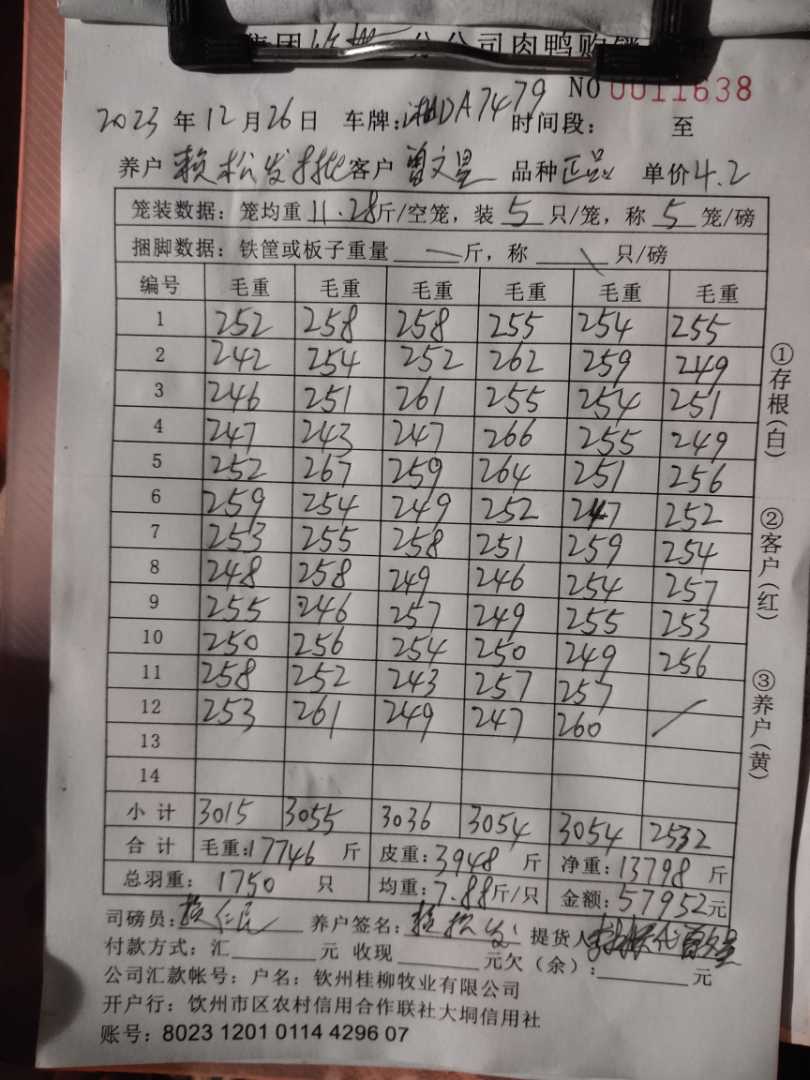 集团 分公司肉鸭购销
NO 0011638
2023 年 12 月 26 日 车牌: 湘DA7479 时间段: 至
养户 赖松发 批 客户 曾文星 品种 正品 单价 4.2
笼装数据: 笼均重 11.28 斤/空笼, 装 5 只/笼, 称 5 笼/磅
捆脚数据: 铁筐或板子重量 — 斤, 称 \ 只/磅
编号 毛重 毛重 毛重 毛重 毛重 毛重
1 252 258 258 255 254 255
2 242 254 252 262 259 249
3 246 251 261 255 254 251
4 247 243 247 266 255 249
5 252 267 259 264 251 256
6 259 254 249 252 247 252
7 253 255 258 251 259 254
8 248 258 249 246 254 257
9 255 246 257 249 255 253
10 250 256 254 250 249 256
11 258 252 243 257 257
12 253 261 249 247 260 /
13
14
小计 3015 3055 3036 3054 3054 2532
合计 毛重: 17746 斤 皮重: 3948 斤 净重: 13798 斤
总羽重: 1750 只 均重: 7.88 斤/只 金额: 57952 元
司磅员: 仁民 养户签名: 赖松发 提货人 代曾文星
付款方式: 汇 元 收现 元欠(余): 元
公司汇款帐号: 户名: 钦州桂柳牧业有限公司
开户行: 钦州市区农村信用合作联社大垌信用社
账号: 8023 1201 0114 4296 07
①存根(白)
②客户(红)
③养户(黄)